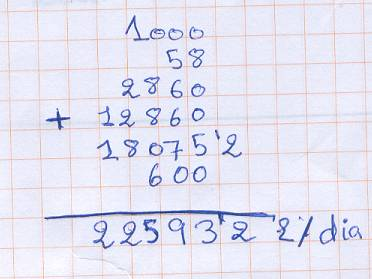 1000
58
2860
+ 12860
18075'2
600
22593'2 l/dia